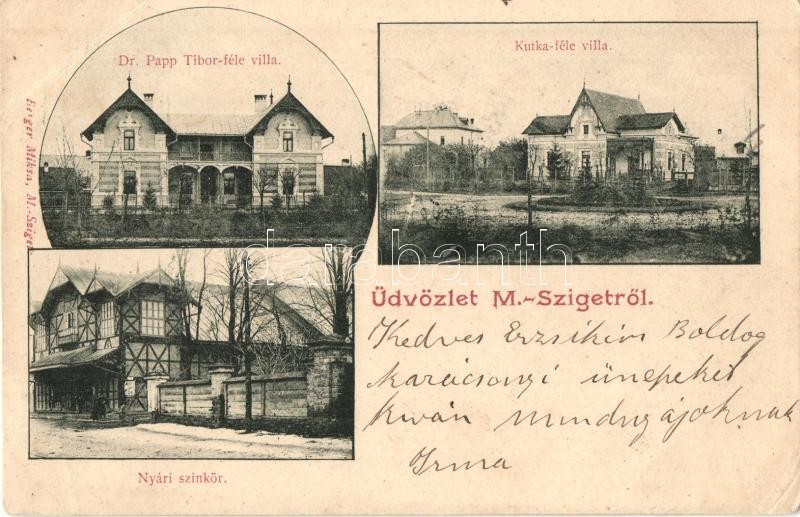 Dr. Papp Tibor-féle villa.
Kutka-féle villa.
Berger Miksa, M.-Sziget
darabanth
Üdvözlet M.-Szigetről.
Kedves Erzsikém Boldog
karácsonyi ünepeket
kiván mindnyájoknak
Irma
Nyári szinkör.